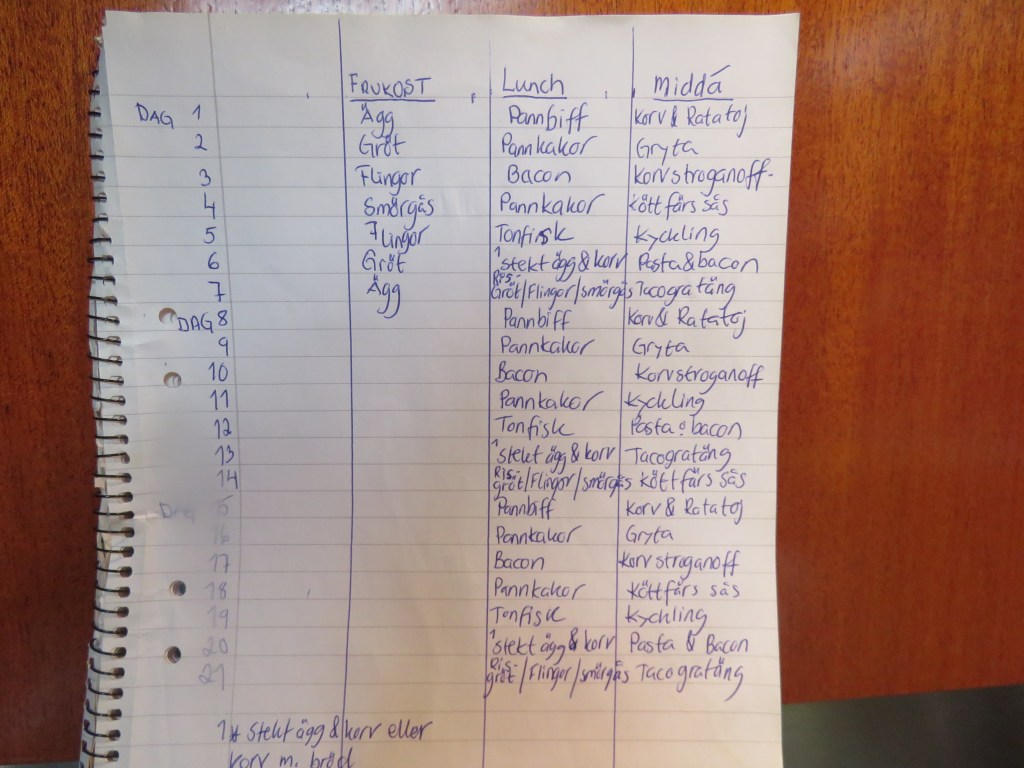 FRUKOST Lunch Middá
DAG 1 Ägg Pannbiff Korv & Ratatoj
2 Gröt Pannkakor Gryta
3 Flingor Bacon Korvstroganoff
4 Smörgås Pannkakor Köttfärs sås
5 Flingor Tonfisk Kyckling
6 Gröt 1 stekt ägg & korv Pasta & bacon
7 Ägg Ris-Gröt/Flingor/smörgås Tacogratäng
DAG 8 Pannbiff Korv & Ratatoj
9 Pannkakor Gryta
10 Bacon Korvstroganoff
11 Pannkakor Kyckling
12 Tonfisk Pasta o bacon
13 1 stekt ägg & korv Tacogratäng
14 Ris-gröt/Flingor/smörgås Köttfärs sås
Dag 15 Pannbiff Korv & Ratatoj
16 Pannkakor Gryta
17 Bacon Korvstroganoff
18 Pannkakor Köttfärs sås
19 Tonfisk Kyckling
20 1 stekt ägg & korv Pasta & Bacon
21 Ris-gröt/Flingor/smörgås Tacogratäng
1* Stekt ägg & korv eller
korv m. bröd